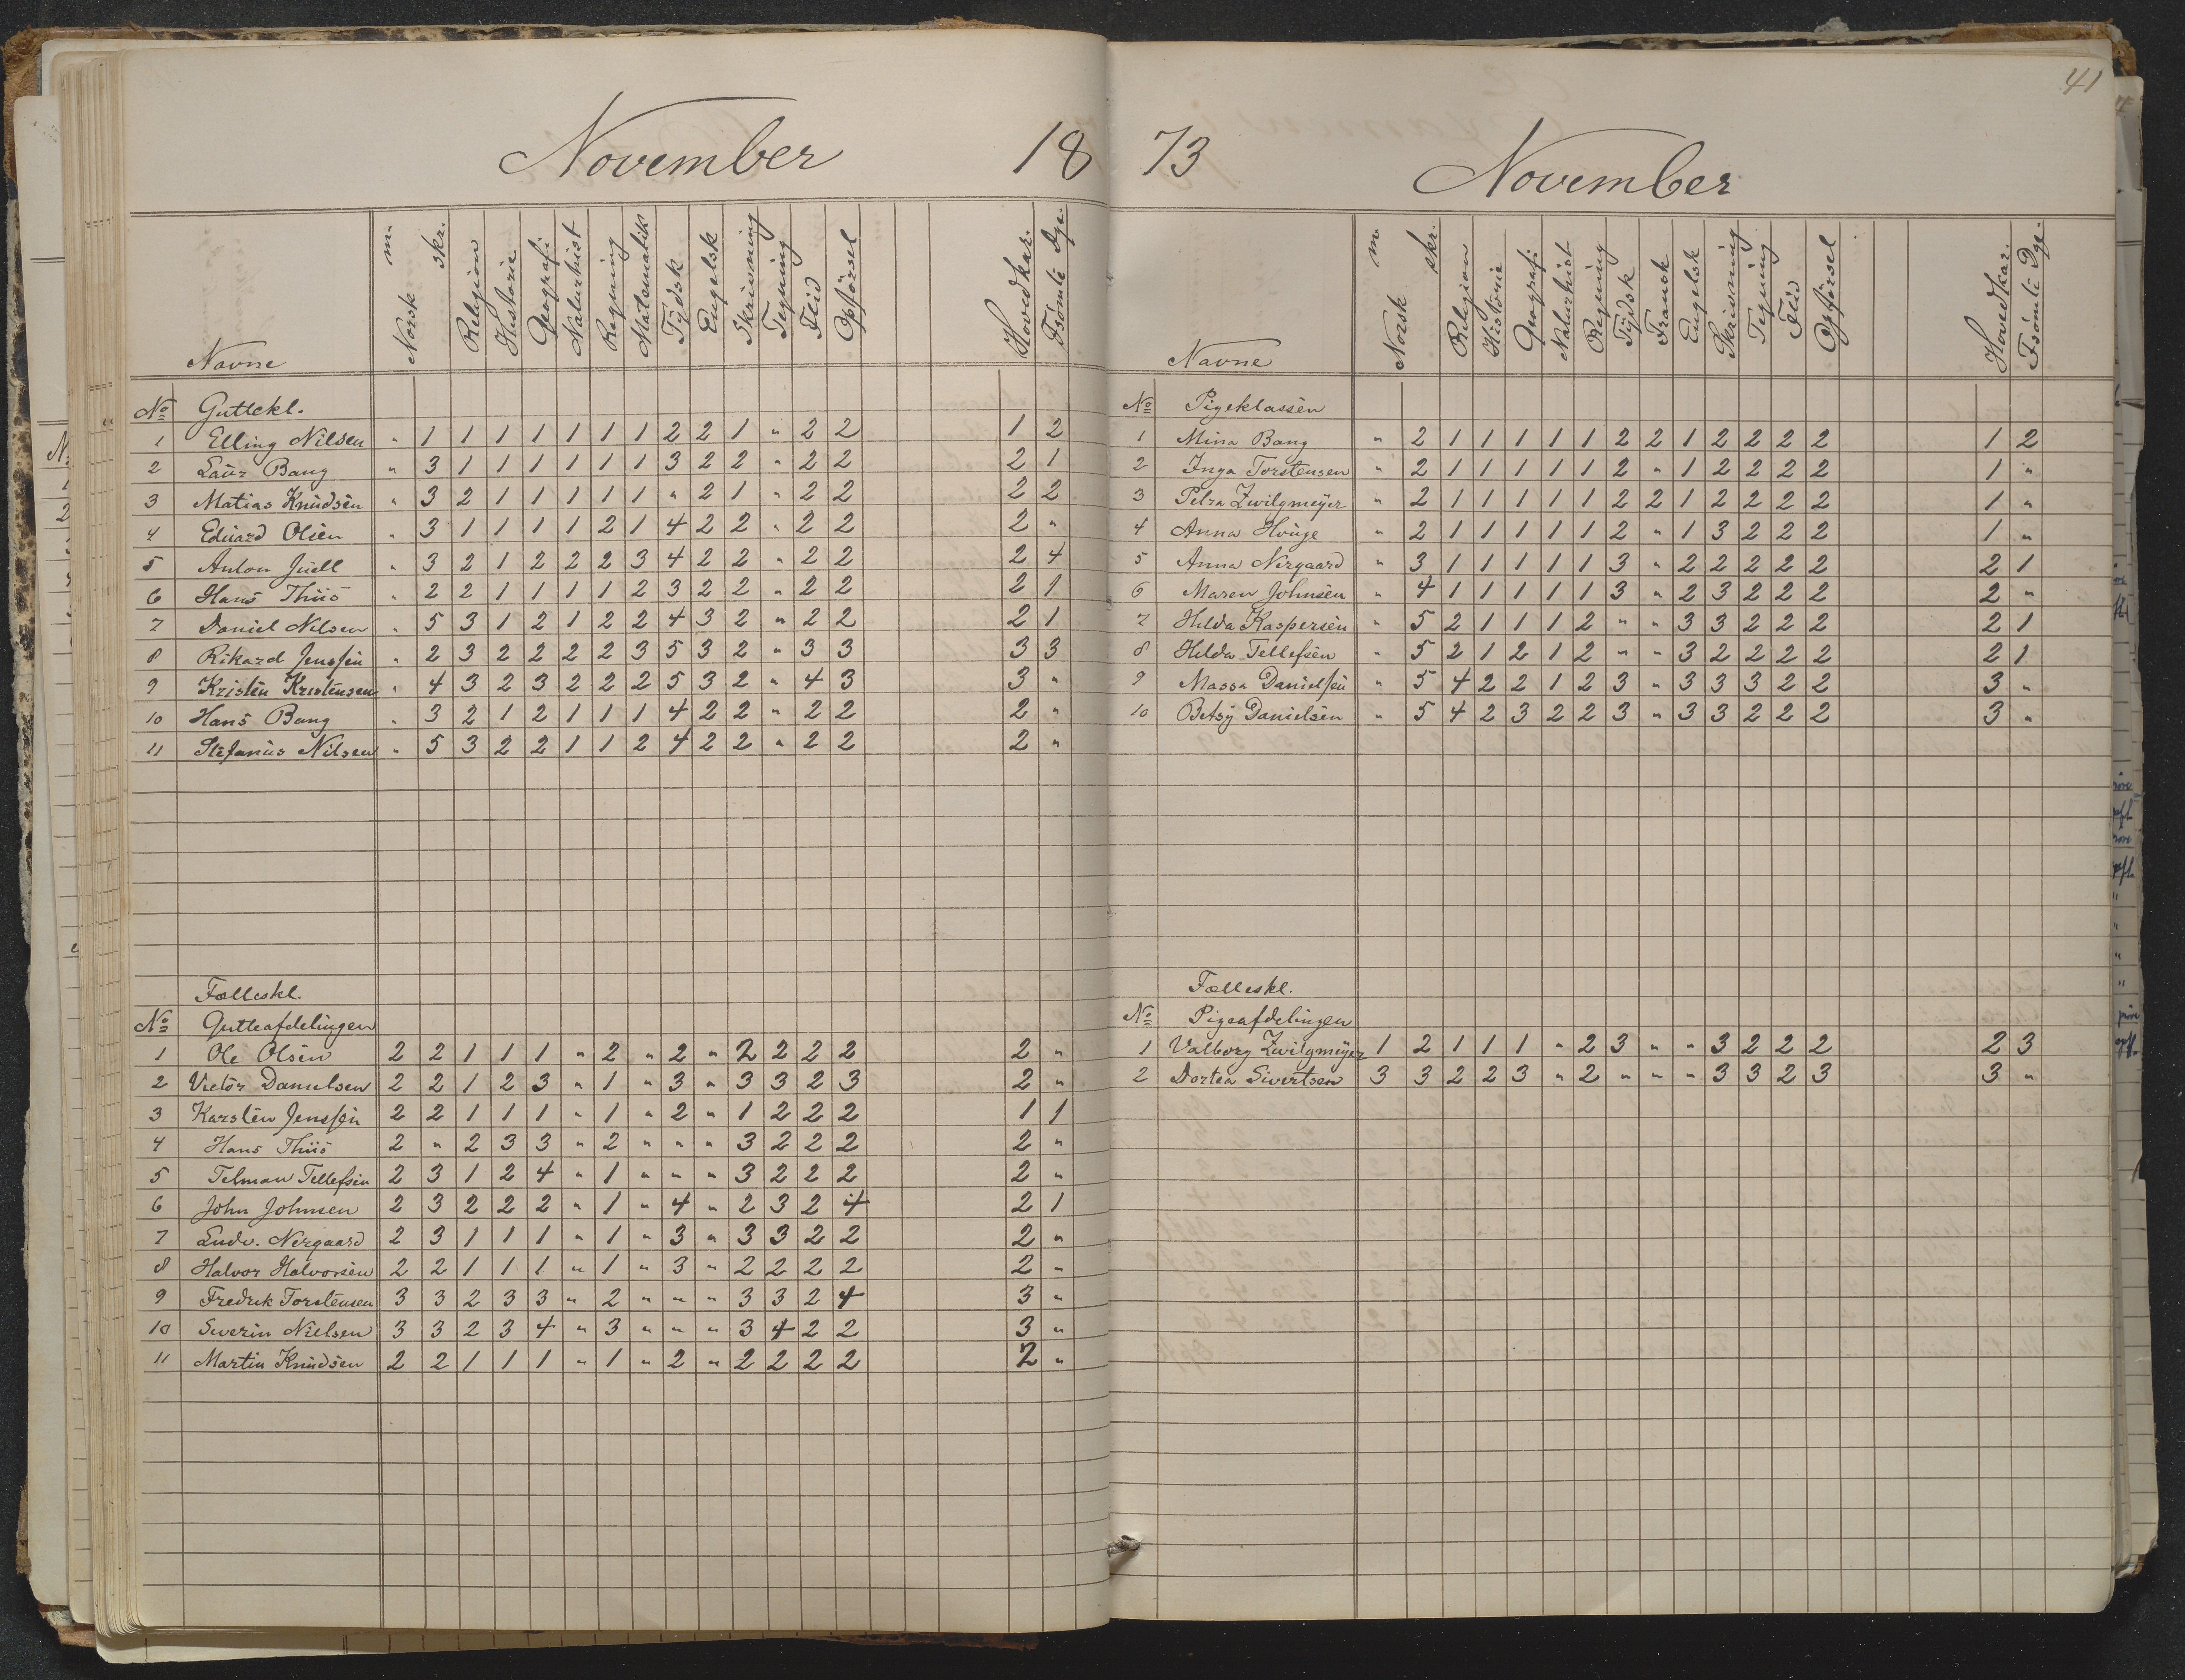 November 18
Navne Norsk m. skr. Religion Historie Geografi Naturhist Regning Matematik Tydsk Engelsk Skrivning Tegning Flid Opförsel Hovedkar. Fsömte Dge.
No Guttekl.
1 Elling Nilsen " 1 1 1 1 1 1 1 2 2 1 " 2 2 1 2
2 Laur Bang " 3 1 1 1 1 1 1 3 2 2 " 2 2 2 1
3 Matias Knudsen " 3 2 1 1 1 1 1 " 2 1 " 2 2 2 2
4 Eduard Olsen " 3 1 1 1 1 2 1 4 2 2 " 2 2 2 "
5 Anton Juell " 3 2 1 2 2 2 3 4 2 2 " 2 2 2 4
6 Hans Thiis " 2 2 1 1 1 1 2 3 2 2 " 2 2 2 1
7 Daniel Nilsen " 5 3 1 2 1 2 2 4 3 2 " 2 2 2 1
8 Rikard Jenssen " 2 3 2 2 2 2 3 5 3 2 " 3 3 3 3
9 Kristen Kristensen " 4 3 2 3 2 2 2 5 3 2 " 4 3 3 "
10 Hans Bang " 3 2 1 2 1 1 1 4 2 2 " 2 2 2 "
11 Stefanus Nilsen " 5 3 2 2 1 1 2 4 2 2 " 2 2 2 "
Fælleskl.
No Gutteafdelingen
1 Ole Olsen 2 2 1 1 1 " 2 " 2 " 2 2 2 2 2 "
2 Victor Danielsen 2 2 1 2 3 " 1 " 3 " 3 3 2 3 2 "
3 Karsten Jenssen 2 2 1 1 1 " 1 " 2 " 1 2 2 2 1 1
4 Hans Thiis 2 " 2 3 3 " 2 " " " 3 2 2 2 2 "
5 Telman Tellefsen 2 3 1 2 4 " 1 " " " 3 2 2 2 2 "
6 John Johnsen 2 3 2 2 2 " 1 " 4 " 2 3 2 4 2 1
7 Ludv. Nergaard 2 3 1 1 1 " 1 " 3 " 3 3 2 2 2 "
8 Halvor Halvorsen 2 2 1 1 1 " 1 " 3 " 2 2 2 2 2 "
9 Fredrik Torstensen 3 3 2 3 3 " 2 " " " 3 3 2 4 3 "
10 Severin Nielsen 3 3 2 3 4 " 3 " " " 3 4 2 2 3 "
11 Martin Knudsen 2 2 1 1 1 " 1 " 2 " 2 2 2 2 2 "
41
73 November
Navne Norsk m. skr. Religion Historie Geografi Naturhist Regning Tydsk Fransk Engelsk Skrivning Tegning Flid Opförsel Hovedkar. Fsömte Dge.
No Pigeklassen
1 Mina Bang " 2 1 1 1 1 1 2 2 1 2 2 2 2 1 2
2 Inga Torstensen " 2 1 1 1 1 1 2 " 1 2 2 2 2 1 "
3 Petra Zwilgmeyer " 2 1 1 1 1 1 2 2 1 2 2 2 2 1 "
4 Anna Houge " 2 1 1 1 1 1 2 " 1 3 2 2 2 1 "
5 Anna Nergaard " 3 1 1 1 1 1 3 " 2 2 2 2 2 2 1
6 Maren Johnsen " 4 1 1 1 1 1 3 " 2 3 2 2 2 2 "
7 Hilda Kaspersen " 5 2 1 1 1 2 " " 3 3 2 2 2 2 1
8 Hilda Tellefsen " 5 2 1 2 1 2 " " 3 2 2 2 2 2 1
9 Massa Danielsen " 5 4 2 2 1 2 3 " 3 3 3 2 2 3 "
10 Betsy Danielsen " 5 4 2 3 2 2 3 " 3 3 2 2 2 3 "
Fælleskl.
No Pigeafdelingen
1 Valborg Zwilgmeyer 1 2 1 1 1 " 2 3 " " 3 2 2 2 2 3
2 Dortea Sivertsen 3 3 2 2 3 " 2 " " " 3 3 2 3 3 "